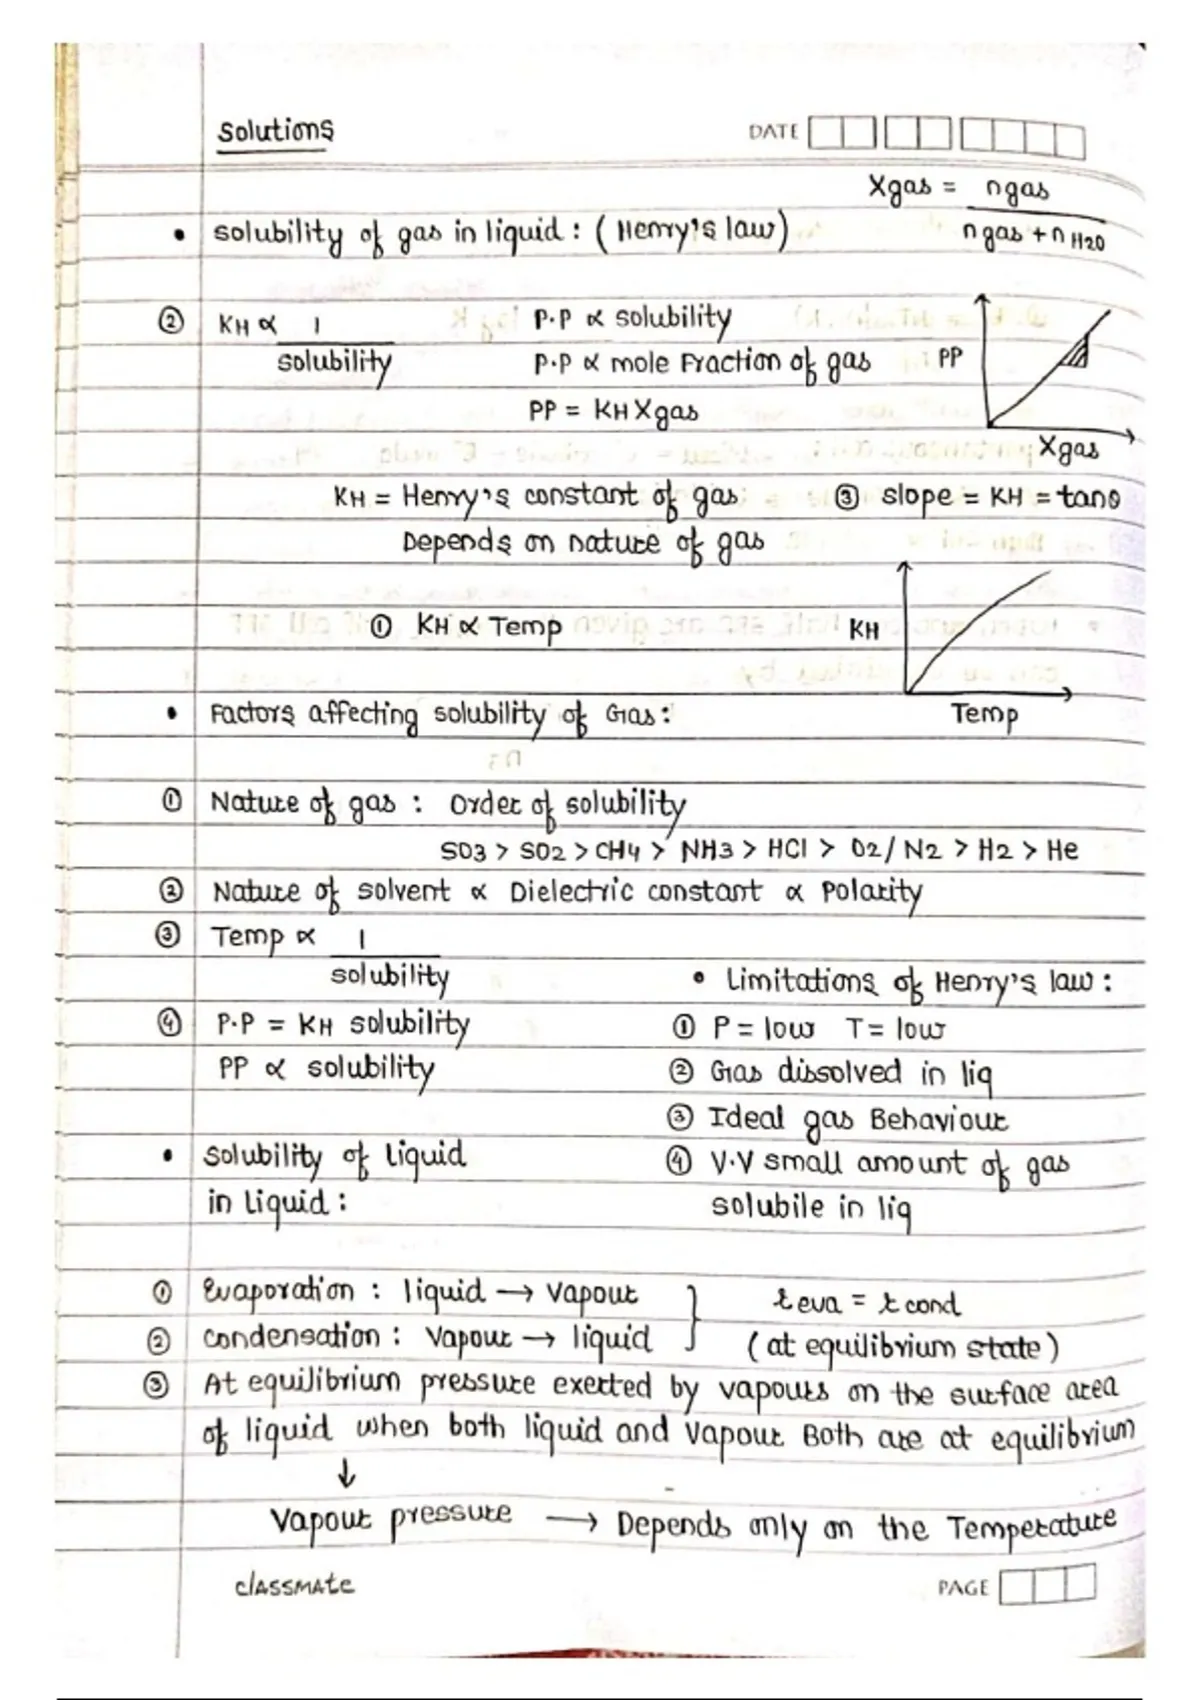 Solutions
DATE
Xgas = ngas / ngas + nH2O
• Solubility of gas in liquid : ( Henry's law )
② KH ∝ 1 / solubility
P.P ∝ solubility
P.P ∝ mole Fraction of gas
PP = KH Xgas
PP
Xgas
KH = Henry's constant of gas
Depends on nature of gas
③ slope = KH = tanθ
① KH ∝ Temp
KH
Temp
• Factors affecting solubility of Gas :
① Nature of gas : Order of solubility
SO3 > SO2 > CH4 > NH3 > HCl > O2 / N2 > H2 > He
② Nature of solvent ∝ Dielectric constant ∝ Polarity
③ Temp ∝ 1 / solubility
④ P.P = KH solubility
PP ∝ solubility
• Limitations of Henry's law :
① P = low T = low
② Gas dissolved in liq
③ Ideal gas Behaviour
④ V.V small amount of gas
solubile in liq
• Solubility of liquid
in liquid :
① Evaporation : liquid → Vapour
② Condensation : Vapour → liquid
r eva = r cond
( at equilibrium state )
③ At equilibrium pressure exerted by vapours on the surface area
of liquid when both liquid and Vapour Both are at equilibrium
↓
Vapour pressure → Depends only on the Temperature
classmate
PAGE